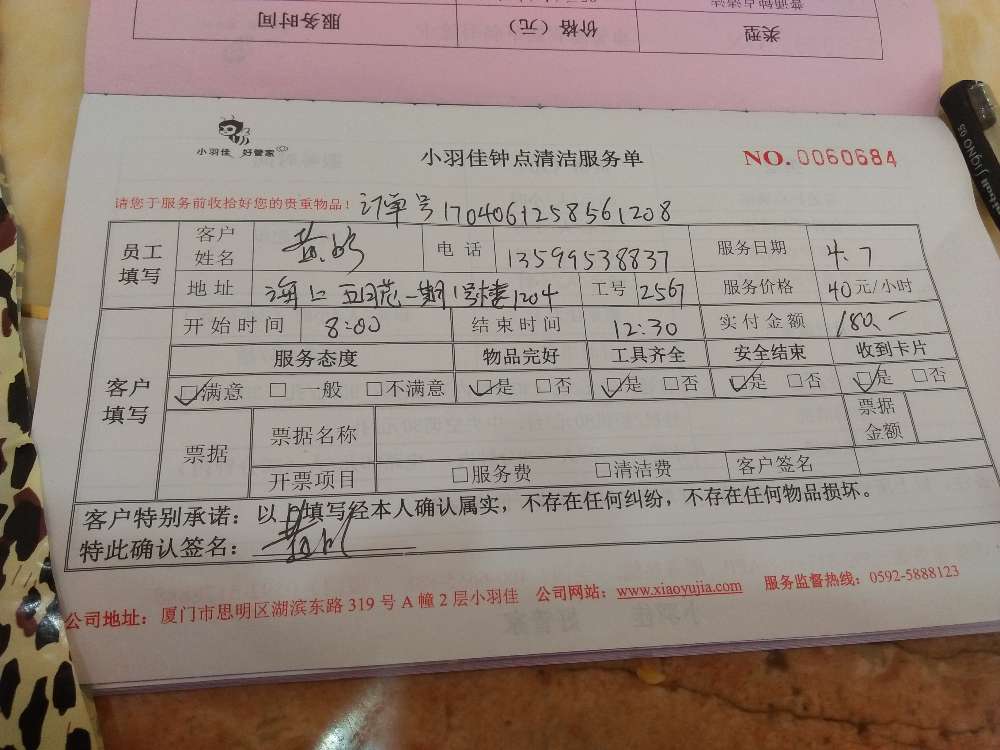 普通钟点清洁
类型 价格（元） 服务时间
小羽佳 好管家
小羽佳钟点清洁服务单
NO. 0060684
请您于服务前收拾好您的贵重物品！ 订单号1704061258561208
员工填写 客户姓名 电话 13599538837 服务日期 4.7
地址 海上五月花一期1号楼1204 工号 2567 服务价格 40元/小时
客户填写 开始时间 8:00 结束时间 12:30 实付金额 180.-
服务态度 物品完好 工具齐全 安全结束 收到卡片
☑满意 □一般 □不满意 ☑是 □否 ☑是 □否 ☑是 □否 ☑是 □否
票据 票据名称 票据金额
开票项目 □服务费 □清洁费 客户签名
客户特别承诺：以上填写经本人确认属实，不存在任何纠纷，不存在任何物品损坏。
特此确认签名：
公司地址：厦门市思明区湖滨东路 319 号 A 幢 2 层小羽佳 公司网站：www.xiaoyujia.com 服务监督热线：0592-5888123